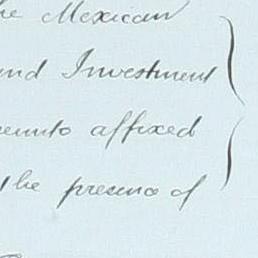 he Mexican
and Investment
reunto affixed
the presence of